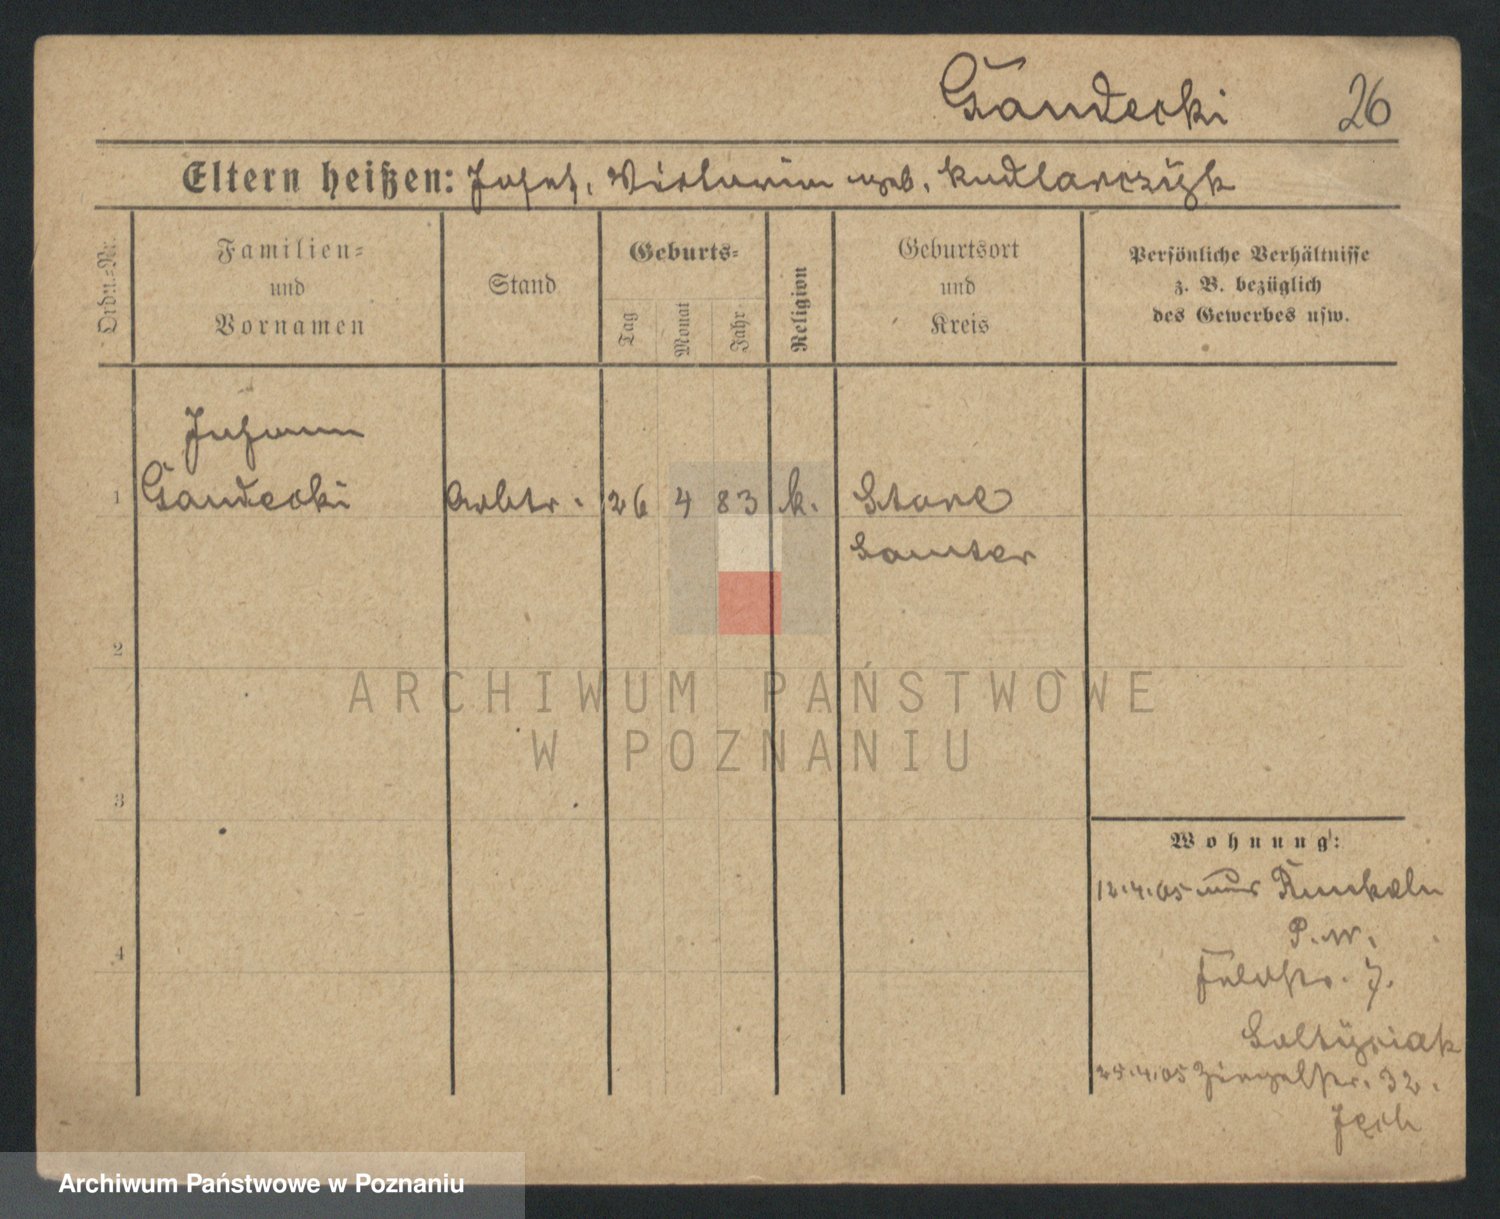 Gandecki 26
Eltern heißen: Josef, Viktoria geb. Kudlarczyk
Ordn.-Nr.
Familien-
und
Vornamen
Stand
Geburts-
Tag
Monat
Jahr
Religion
Geburtsort
und
Kreis
Persönliche Verhältnisse
z. B. bezüglich
des Gewerbes usw.
Johann
1 Gandecki Arbtr. 26 4 83 k. Stare
Samter
2
ARCHIWUM PAŃSTWOWE
W POZNANIU
3
Wohnung:
12.4.05 aus
4
P.W.
Feldstr. 7.
Soltysiak
25.4.05 Ziegelstr. 32.
Archiwum Państwowe w Poznaniu